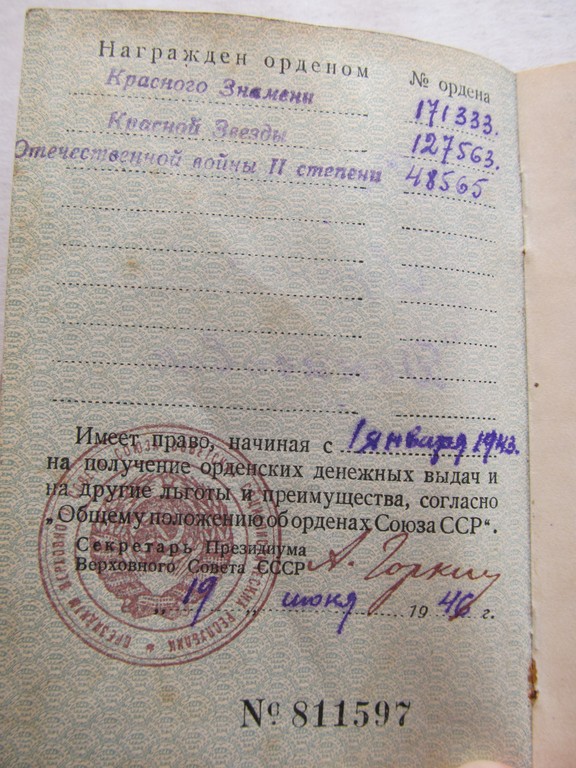 Награжден орденом № ордена
Красного Знамени 171333.
Красной Звезды 127563.
Отечественной войны II степени 48565
Имеет право, начиная с 1 января 1943.
на получение орденских денежных выдач и
на другие льготы и преимущества, согласно
„Общему положению об орденах Союза ССР“.
Секретарь Президиума
Верховного Совета СССР А. Горкин
„19„ июня 1946 г.
№ 811597